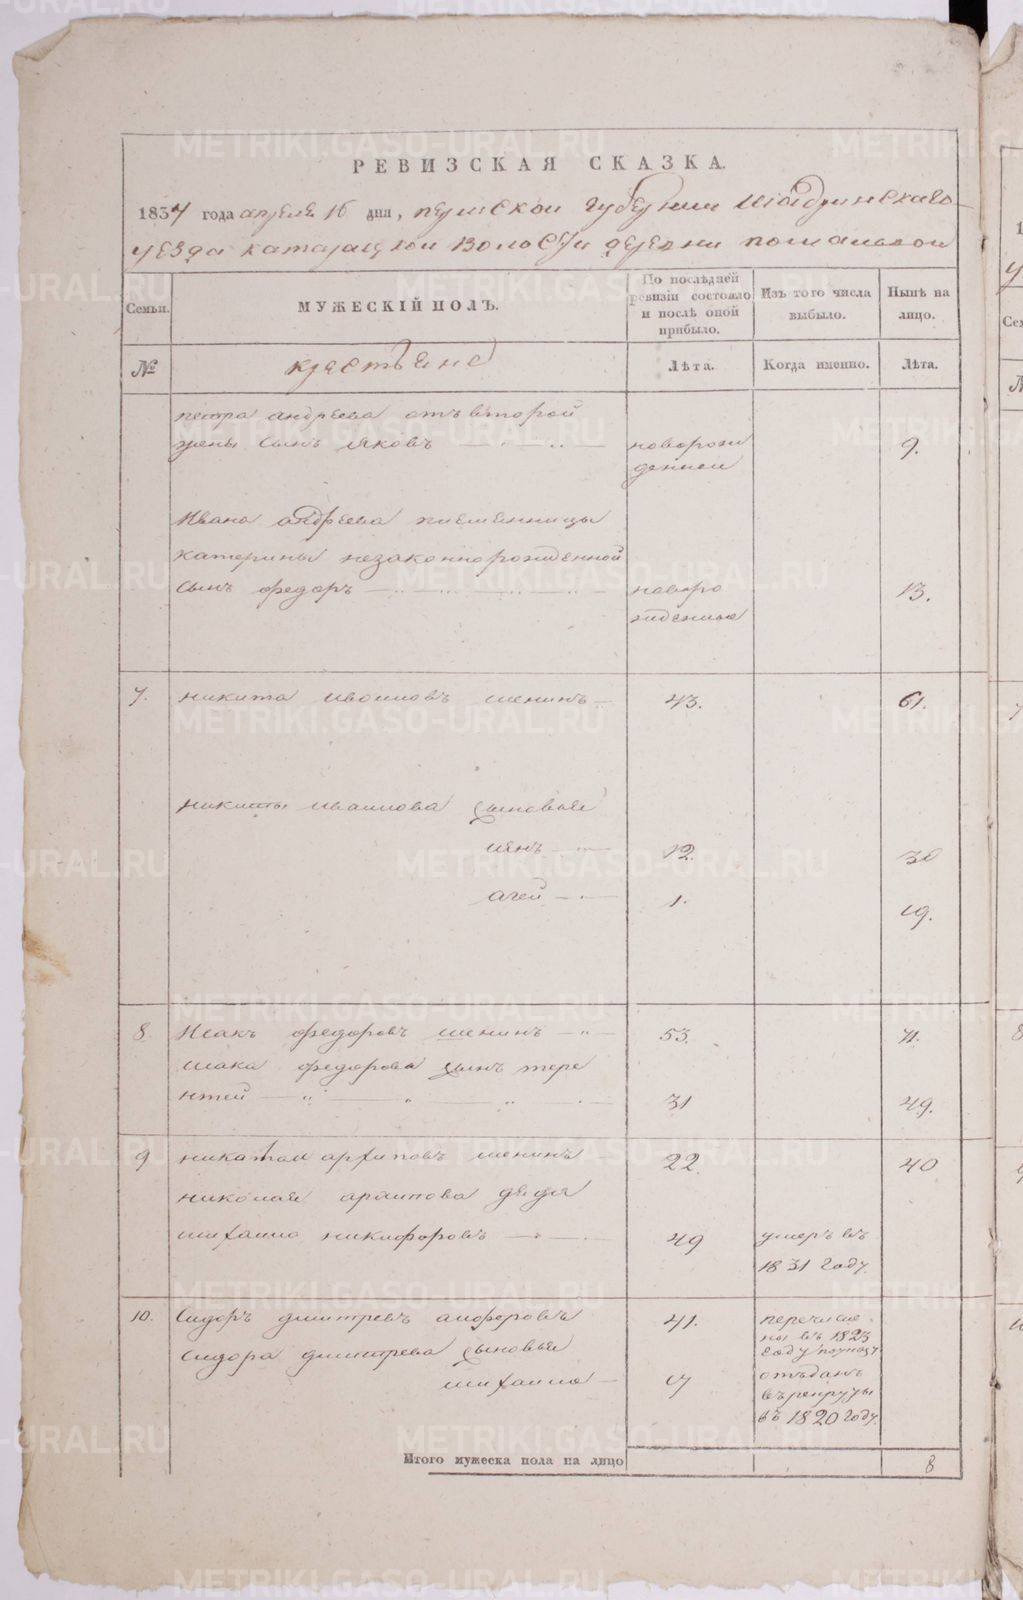 РЕВИЗСКАЯ СКАЗКА.
1834 года апреля 16 дня, пермской губернии Шадринскаго
уезда катайской волости деревни
Семьи.
МУЖЕСКІЙ ПОЛЪ.
По послѣдней ревизіи состояло и послѣ оной прибыло.
Изъ того числа выбыло.
Нынѣ на лицо.
№ крестьяне Лѣта. Когда именно. Лѣта.
петра андреева отъ второй
жены сынъ яковъ новорож 9.
денной
Ивана андреева племенницы
катерины незаконнорожденной
сынъ федоръ новоро 13.
жденной
7. никита ивановъ шенинъ 43. 61.
никиты иванова сыновья
12. 30
агей 1. 19.
8. Исакъ федоровъ шенинъ 53. 71.
исака федорова сынъ тере
нтей 31 49.
9 николай архиповъ шенинъ 22. 40
николая архипова дядя
михайло никифоровъ 49 умеръ въ
1831 году.
10. Сидоръ дмитревъ анферовъ 41. перечисле
ны въ 1823
году
сидора дмитрева сыновья
михайло 17 отъданъ
въ рекруты
въ 1820 году.
Итого мужеска пола на лицо 8
METRIKI.GASO-URAL.RU